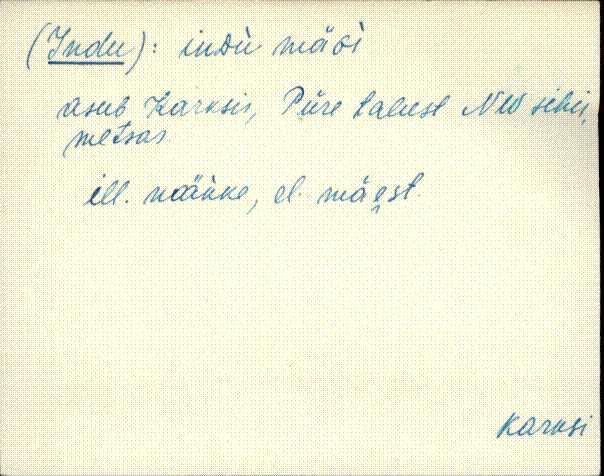 (Indu): inDù mäGì
asub Karksis, Püre talust NW sihis,
metsas.
ill. mäkke, el. mäest.
Karksi